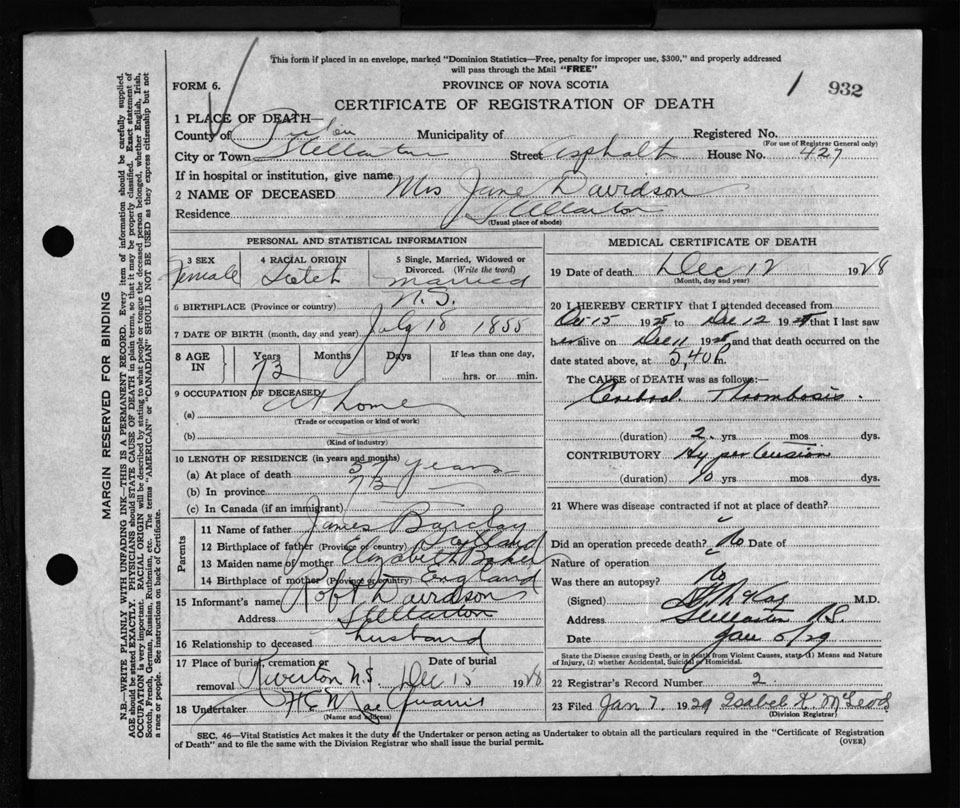 This form if placed in an envelope, marked "Dominion Statistics—Free, penalty for improper use, $300," and properly addressed
will pass through the Mail "FREE"
FORM 6.
PROVINCE OF NOVA SCOTIA
932
CERTIFICATE OF REGISTRATION OF DEATH
1 PLACE OF DEATH—
County of Pictou Municipality of Registered No.
(For use of Registrar General only)
City or Town Stellarton Street Asphalt House No. 427
If in hospital or institution, give name
2 NAME OF DECEASED Mrs Jane Davidson
Residence Stellarton
(Usual place of abode)
PERSONAL AND STATISTICAL INFORMATION
3 SEX 4 RACIAL ORIGIN 5 Single, Married, Widowed or
Divorced. (Write the word)
Female Scotch married
6 BIRTHPLACE (Province or country) N.S.
7 DATE OF BIRTH (month, day and year) July 18 1855
8 AGE IN Years Months Days If less than one day,
73 hrs. or min.
9 OCCUPATION OF DECEASED
(a) At home
(Trade or occupation or kind of work)
(b)
(Kind of industry)
10 LENGTH OF RESIDENCE (in years and months)
(a) At place of death 57 years
(b) In province 73
(c) In Canada (if an immigrant)
Parents
11 Name of father James Barclay
12 Birthplace of father (Province or country) Scotland
13 Maiden name of mother Elizabeth
14 Birthplace of mother (Province or country) England
15 Informant's name Robt Davidson
Address Stellarton
16 Relationship to deceased husband
17 Place of burial, cremation or Date of burial
removal Riverton N.S. Dec 15 1928
18 Undertaker
(Name and address)
MEDICAL CERTIFICATE OF DEATH
19 Date of death Dec 12 1928
(Month, day and year)
20 I HEREBY CERTIFY that I attended deceased from
15 1928 to Dec 12 1928 that I last saw
her alive on Dec 11 1928, and that death occurred on the
date stated above, at 5,40 P m.
The CAUSE of DEATH was as follows:—
Cerebral Thrombosis.
(duration) 2 yrs mos dys.
CONTRIBUTORY Hypertension
(duration) 10 yrs mos dys.
21 Where was disease contracted if not at place of death?
Did an operation precede death? No Date of
Nature of operation
Was there an autopsy? No
(Signed) M.D.
Address Stellarton N.S.
Date Jan 5/29
State the Disease causing Death, or in death from Violent Causes, state (1) Means and Nature
of Injury, (2) whether Accidental, Suicidal or Homicidal.
22 Registrar's Record Number 2
23 Filed Jan 7. 1929 Isabel K. McLeod
(Division Registrar)
SEC. 46—Vital Statistics Act makes it the duty of the Undertaker or person acting as Undertaker to obtain all the particulars required in the "Certificate of Registration
of Death" and to file the same with the Division Registrar who shall issue the burial permit.
(OVER)
MARGIN RESERVED FOR BINDING
N.B.—WRITE PLAINLY WITH UNFADING INK—THIS IS A PERMANENT RECORD. Every item of information should be carefully supplied.
AGE should be stated EXACTLY. PHYSICIANS should STATE CAUSE OF DEATH in plain terms, so that it may be properly classified. Exact statement of
OCCUPATION is very important. RACIAL ORIGIN will be described by stating to what people or tongue the deceased person belonged, whether English, Irish,
Scotch, French, German, Russian, Ruthenian, etc. The terms "AMERICAN" or "CANADIAN" SHOULD NOT BE USED as they express citizenship but not
a race or people. See instructions on back of Certificate.